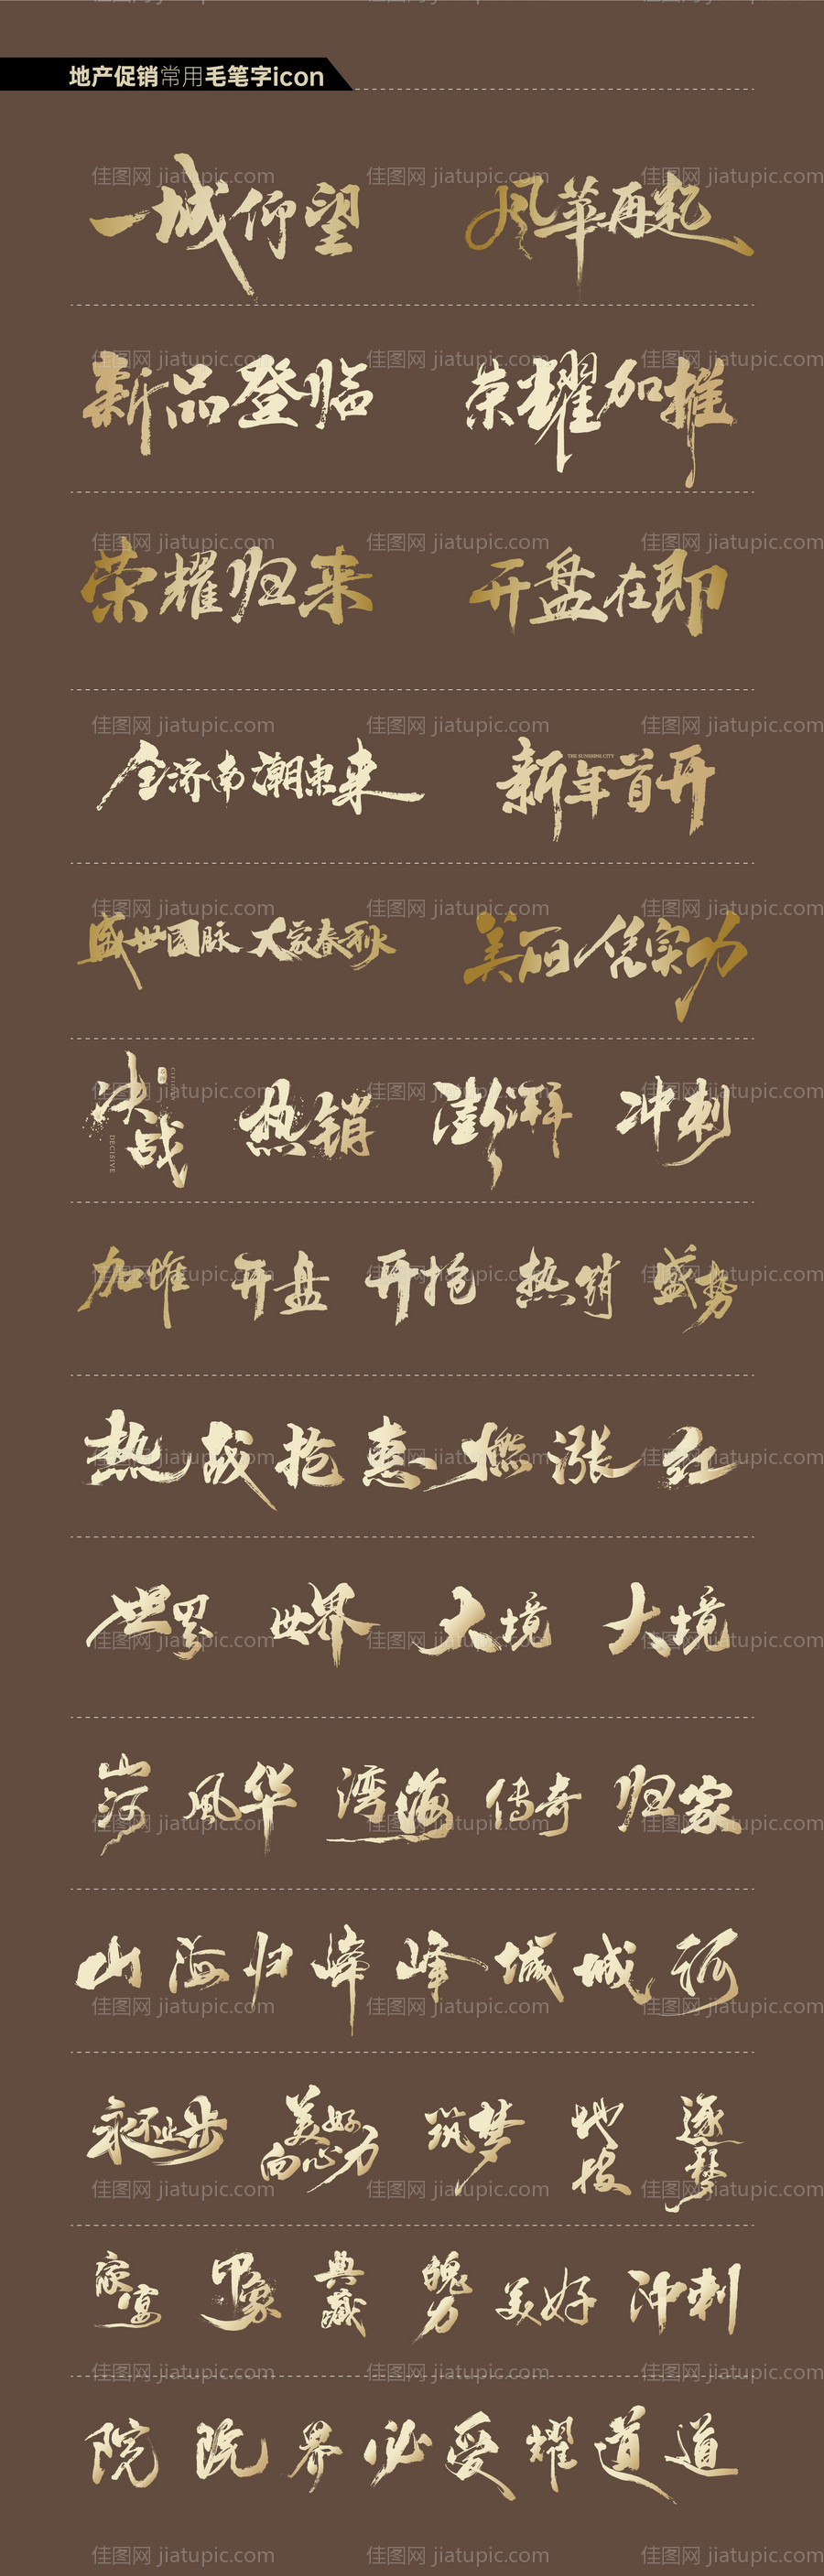 地产促销常用毛笔字icon
一城仰望 风华再起
新品登临 荣耀加推
荣耀归来 开盘在即
全济南潮东来 新年首开
THE SUNSHINE CITY
盛世国脉 大家春秋 美丽凭实力
决战 热销 澎湃 冲刺
DECISIVE
加推 开盘 开抢 热销 盛势
热 战 抢 惠 燃 涨 红
世界 世界 大境 大境
山河 风华 湾海 传奇 归家
山 海 归 峰 峰 城 城 河
永不止步 美好向心力 筑梦 地段 逐梦
家宴 印象 典藏 魄力 美好 冲刺
院 院 界 必 爱 耀 道 道
佳图网 jiatupic.com